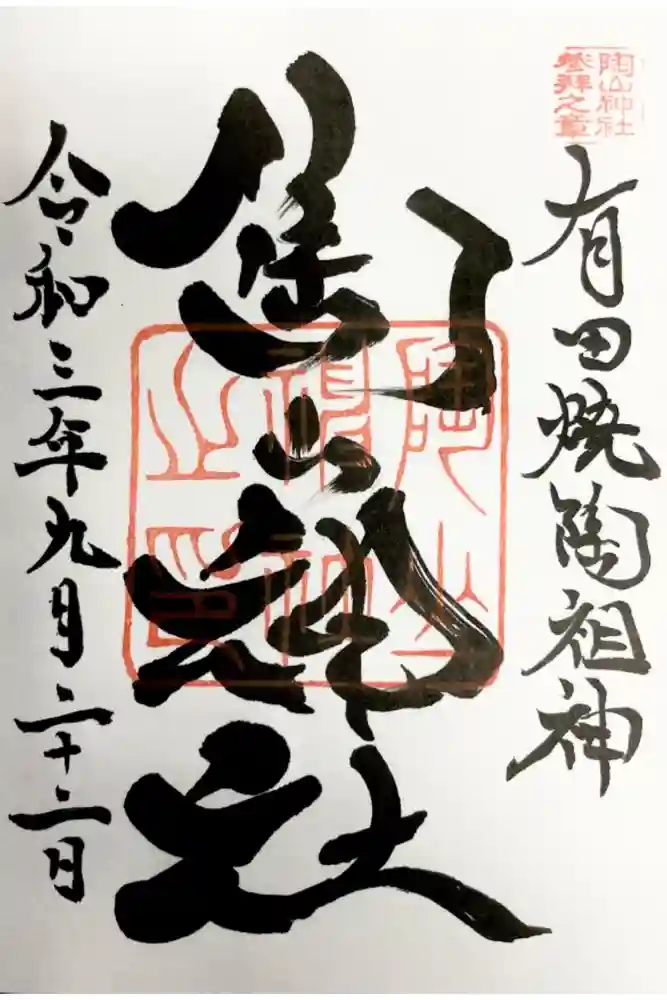 陶山神社
参拝之章
有田焼陶祖神
陶山神社
陶山
神社
之印
令和三年九月二十二日